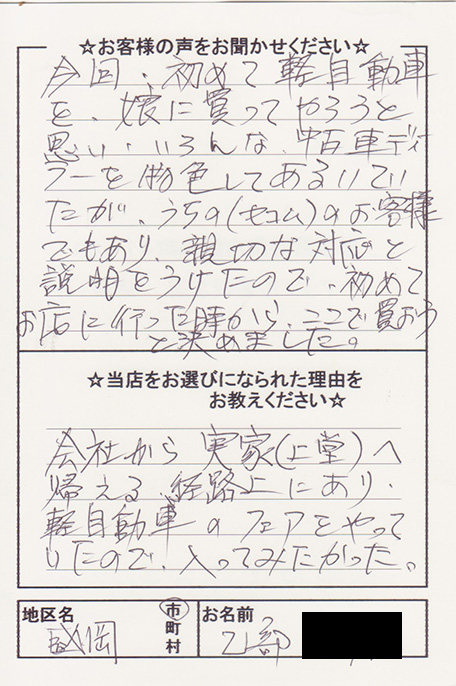 ☆お客様の声をお聞かせください☆
今回、初めて軽自動車
を、嬢に買ってやろうと
思い、いろんな、中古車ディ
ラーを物色してあるいてい
たが、うちの(セコム)のお客様
でもあり、親切な対応と
説明をうけたので、初めて
お店に行った時から、ここで買おう
と決めました。
☆当店をお選びになられた理由を
お教えください☆
会社から実家(上堂)へ
帰える経路上にあり、
軽自動車のフェアをやって
いたので、入ってみたかった。
地区名 市町村 お名前
盛岡 乙部